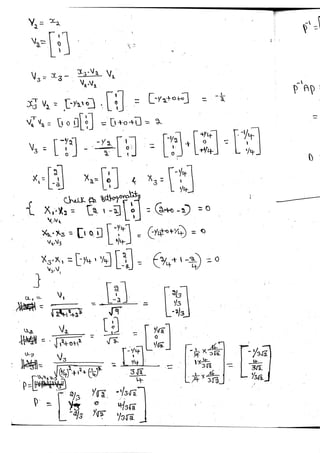 V₂ = x₂
V₂ = [1 0 1]
V₃ = x₃ - (x₃.V₂ / V₂.V₂) V₂
x₃ᵀ V₂ = [-1/2 1 0] . [1 0 1] = [-1/2+0+0] = -1/2
V₂ᵀ V₂ = [1 0 1] [1 0 1] = [1+0+1] = 2
V₃ = [-1/2 1 0] - (-1/2 / 2) [1 0 1] = [-1/2 1 0] + [1/4 0 1/4] = [-1/4 1 1/4]
X₁ = [2 1 -2] X₂ = [1 0 1] & X₃ = [-1/4 1 1/4]
Check for Orthogonality
{ X₁.X₂ = [2 1 -2] [1 0 1] = (2+0-2) = 0
V₁V₂
X₂.X₃ = [1 0 1] [-1/4 1 1/4] = (-1/4+0+1/4) = 0
V₂.V₃
X₃.X₁ = [-1/4 1 1/4] [2 1 -2] = (-2/4+1-2/4) = 0
V₃.V₁
}
u₁ = V₁ / √(2²+1²+2²) = [2 1 -2] / √9 = [2/3 1/3 -2/3]
u₂ = V₂ / √(1²+0+1²) = [1 0 1] / √2 = [1/√2 0 1/√2]
u₃ = V₃ / √((1/4)²+1²+(1/4)²) = [-1/4 1 1/4] / (3√2/4) = [-1/3√2 4/3√2 1/3√2]
P = [2/3 1/√2 -1/3√2
1/3 0 4/3√2
-2/3 1/√2 1/3√2]
P⁻¹ =
P⁻¹AP